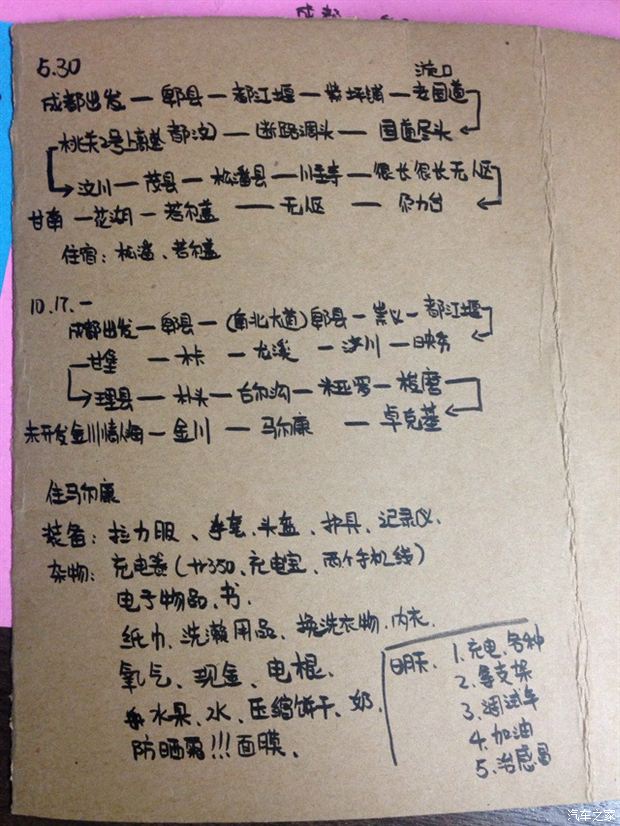 成都
5.30
漩口
成都出发一郫县一都江堰一紫坪铺一老国道
桃关2号上高速(都汶)一断路调头一国道尽头
汶川一茂县一松潘县一川主寺一很长很长无人区
甘南一花湖一若尔盖一无人区一尕力台
住宿:松潘、若尔盖
10.17.一
成都出发一郫县一(南北大道)郫县一崇义一都江堰
一甘堡一木卡一龙溪一汶川一映秀
理县一朴头一古尔沟一米亚罗一梭磨
未开发金川情人海一金川一马尔康一卓克基
住马尔康
装备:拉力服、手套、头盔、护具、记录仪.
杂物:充电器(为350、充电宝、两个手机线)
电子物品、书.
纸巾、洗漱用品、换洗衣物、内衣.
氧气、现金、电棍.
水果、水、压缩饼干、奶.
防晒霜!!!面膜、
明天、1.充电、各种
2.导支架
3.调试车
4.加油
5.治感冒
汽车之家